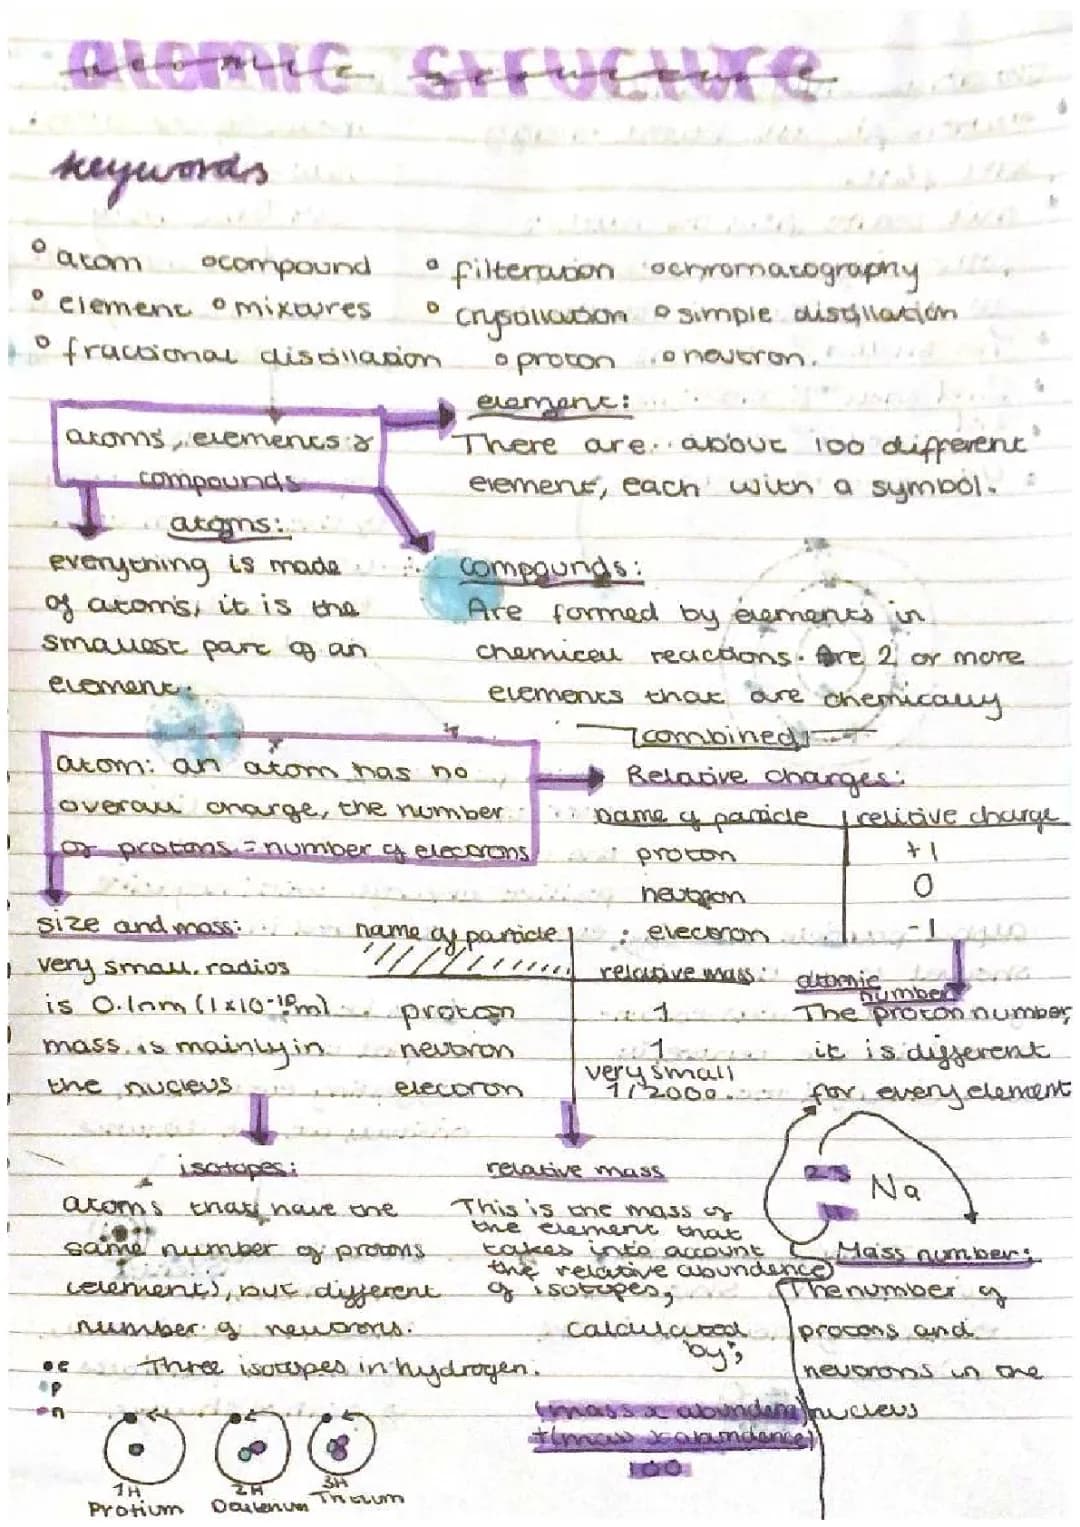 atomic structure
keywords
° atom ° compound ° filteration ° chromatography
° element ° mixtures ° crysallation ° simple distillation
° fractional distillation ° proton ° neutron.
atoms, elements &
compounds
element:
There are about 100 different
element, each with a symbol.
atoms:
everything is made
of atoms, it is the
smallest part of an
element.
compounds:
Are formed by elements in
chemical reactions. Are 2 or more
elements that are chemically
combined
atom: an atom has no
overall charge, the number
of protons = number of electrons
Relative charges:
name of particle relitive charge
proton +1
neutron 0
electron -1
size and mass:
very small. radius
is 0.1nm (1x10-10m)
mass is mainly in
the nucleus
name of particle relative mass:
proton 1
neutron 1
electron very small
1/2000.
atomic
number
The proton number,
it is different
for every element
isotopes:
atoms that have the
same number of protons
(element), but different
number of neutrons.
Three isotopes in hydrogen.
relative mass
This is the mass of
the element that
takes into account
the relative abundence
of isotopes,
calculated
by;
(mass x abundance)
+(mass x abundance)
100
23
Na
Mass number:
The number of
protons and
neutrons in the
nucleus
e
p
n
1H
Protium
2H
3H